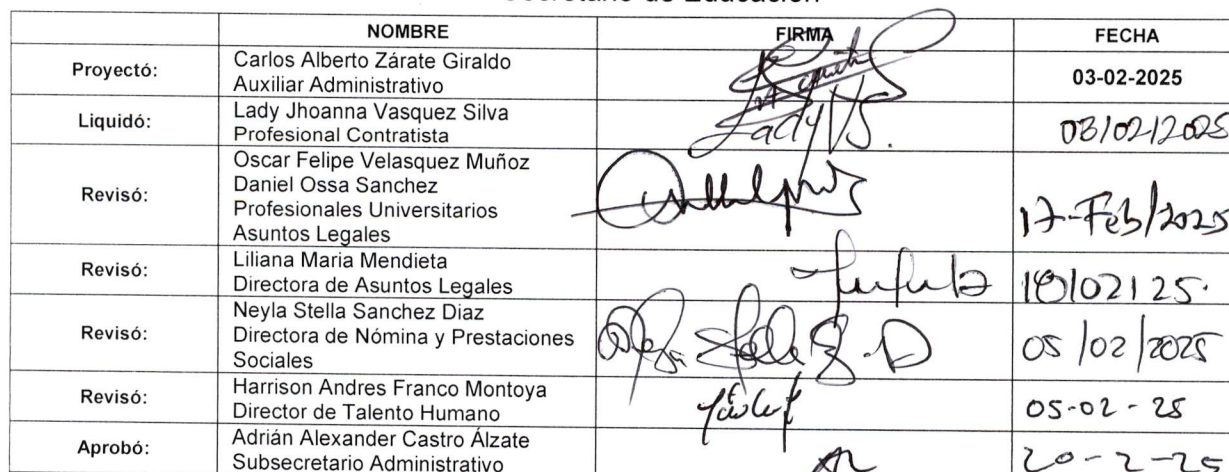 Secretario de Educación
NOMBRE FIRMA FECHA
Proyectó: Carlos Alberto Zárate Giraldo
Auxiliar Administrativo
03-02-2025
Liquidó: Lady Jhoanna Vasquez Silva
Profesional Contratista
LadyVS.
03/02/2025
Revisó: Oscar Felipe Velasquez Muñoz
Daniel Ossa Sanchez
Profesionales Universitarios
Asuntos Legales
17-Feb/2025
Revisó: Liliana Maria Mendieta
Directora de Asuntos Legales
18/02/25.
Revisó: Neyla Stella Sanchez Diaz
Directora de Nómina y Prestaciones
Sociales
05/02/2025
Revisó: Harrison Andres Franco Montoya
Director de Talento Humano
05-02-25
Aprobó: Adrián Alexander Castro Álzate
Subsecretario Administrativo
20-2-25